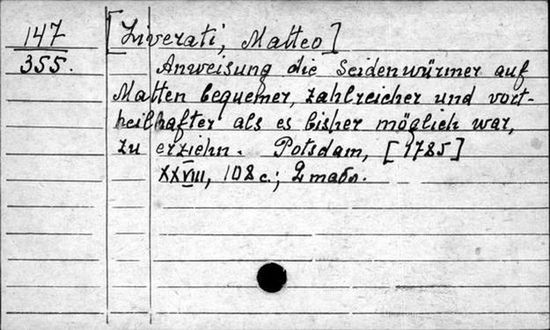 147 [Liverati, Matteo]
355. Anweisung die Seidenwürmer auf
Matten bequemer, zahlreicher und vort-
heilhafter als es bisher möglich war,
zu erziehn. Potsdam, [1785]
XXVIII, 108 с.; 2 табл.